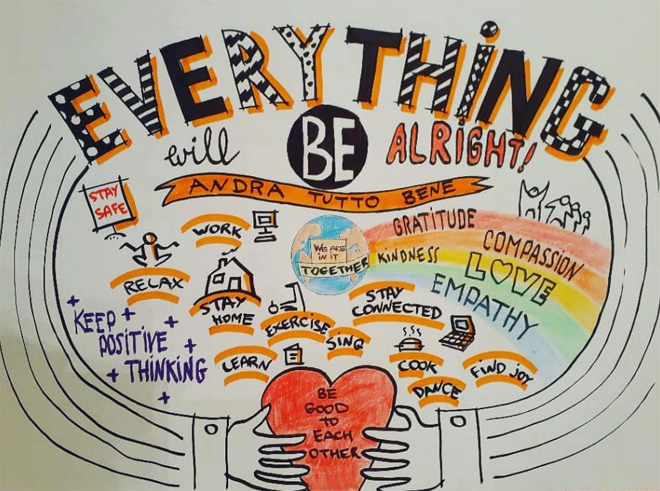 EVERYTHING
will BE ALRIGHT!
ANDRA TUTTO BENE
STAY
SAFE
WORK
RELAX
STAY
HOME
WE ARE
IN IT
TOGETHER
GRATITUDE
KINDNESS
COMPASSION
LOVE
EMPATHY
STAY
CONNECTED
EXERCISE
SING
KEEP
POSITIVE
THINKING
LEARN
COOK
DANCE
FIND JOY
BE
GOOD
TO
EACH
OTHER